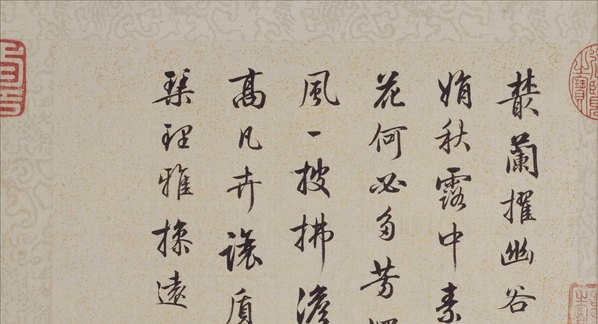 丛蘭擢幽谷
娟秋露中素
花何必多芳
風一披拂澹
高凡卉讓質
琹理雅操遠